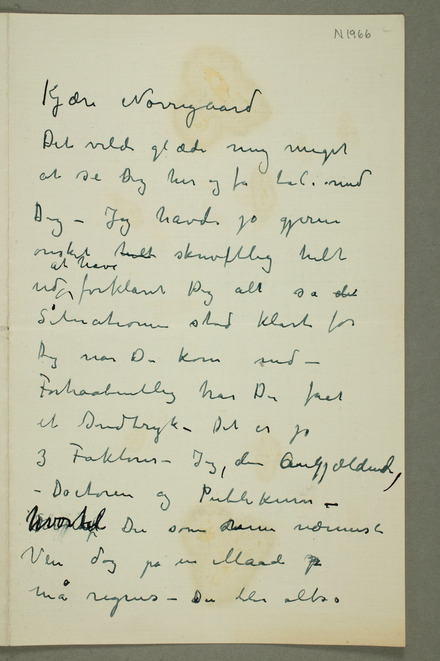 N1966
Kjære Nørregaard
Det vilde glæde mig meget
at se Dig her og få tale med
Dig – Jeg havde jo gjerne
ønsket helt skriftlig helt
at have
ud forklaret Dig alt så det
Situationen stod klart for
Dig når Du kom ned –
Forhaabentlig har Du faat
et Indtryk – Det er jo
3 Faktorer – Jeg, den Angjældende,
– Doctoren og Publikum –
hvortil Du som min nærmeste
Ven dog på en Maade
må regnes – Du blir altså